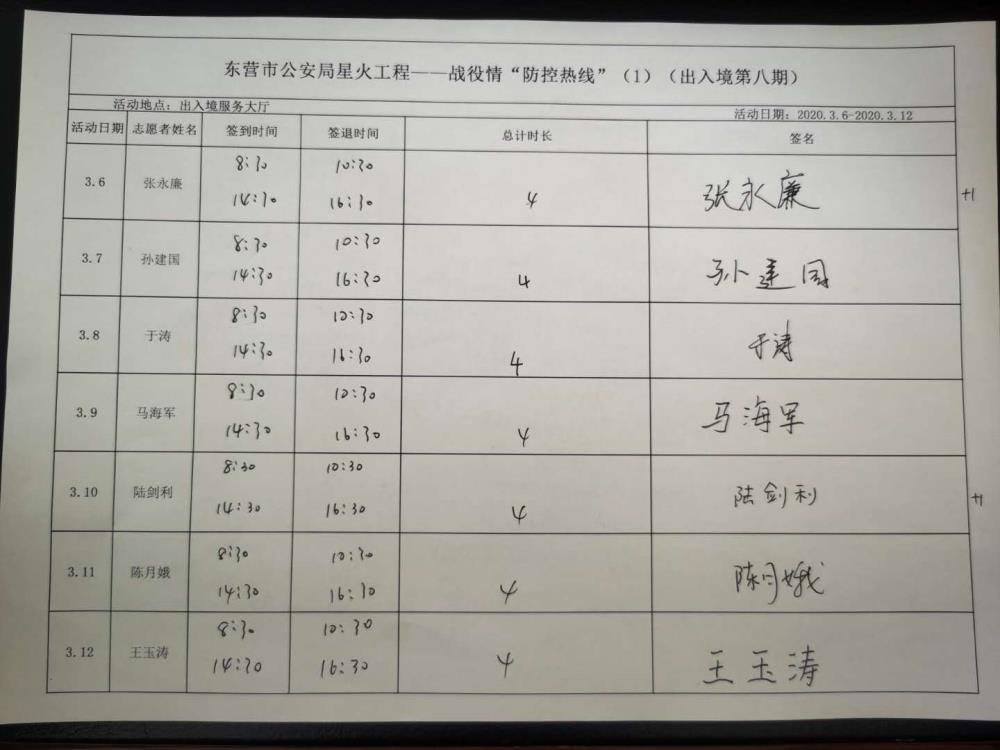 东营市公安局星火工程——战役情“防控热线”（1）（出入境第八期）
活动地点：出入境服务大厅 活动日期：2020.3.6-2020.3.12
活动日期 志愿者姓名 签到时间 签退时间 总计时长 签名
8:30 10:30
3.6 张永廉 4 张永廉
14:30 16:30
8:30 10:30
3.7 孙建国 4 孙建国
14:30 16:30
8:30 10:30
3.8 于涛 4 于涛
14:30 16:30
8:30 10:30
3.9 马海军 4 马海军
14:30 16:30
8:30 10:30
3.10 陆剑利 4 陆剑利
14:30 16:30
8:30 10:30
3.11 陈月娥 4 陈月娥
14:30 16:30
8:30 10:30
3.12 王玉涛 4 王玉涛
14:30 16:30